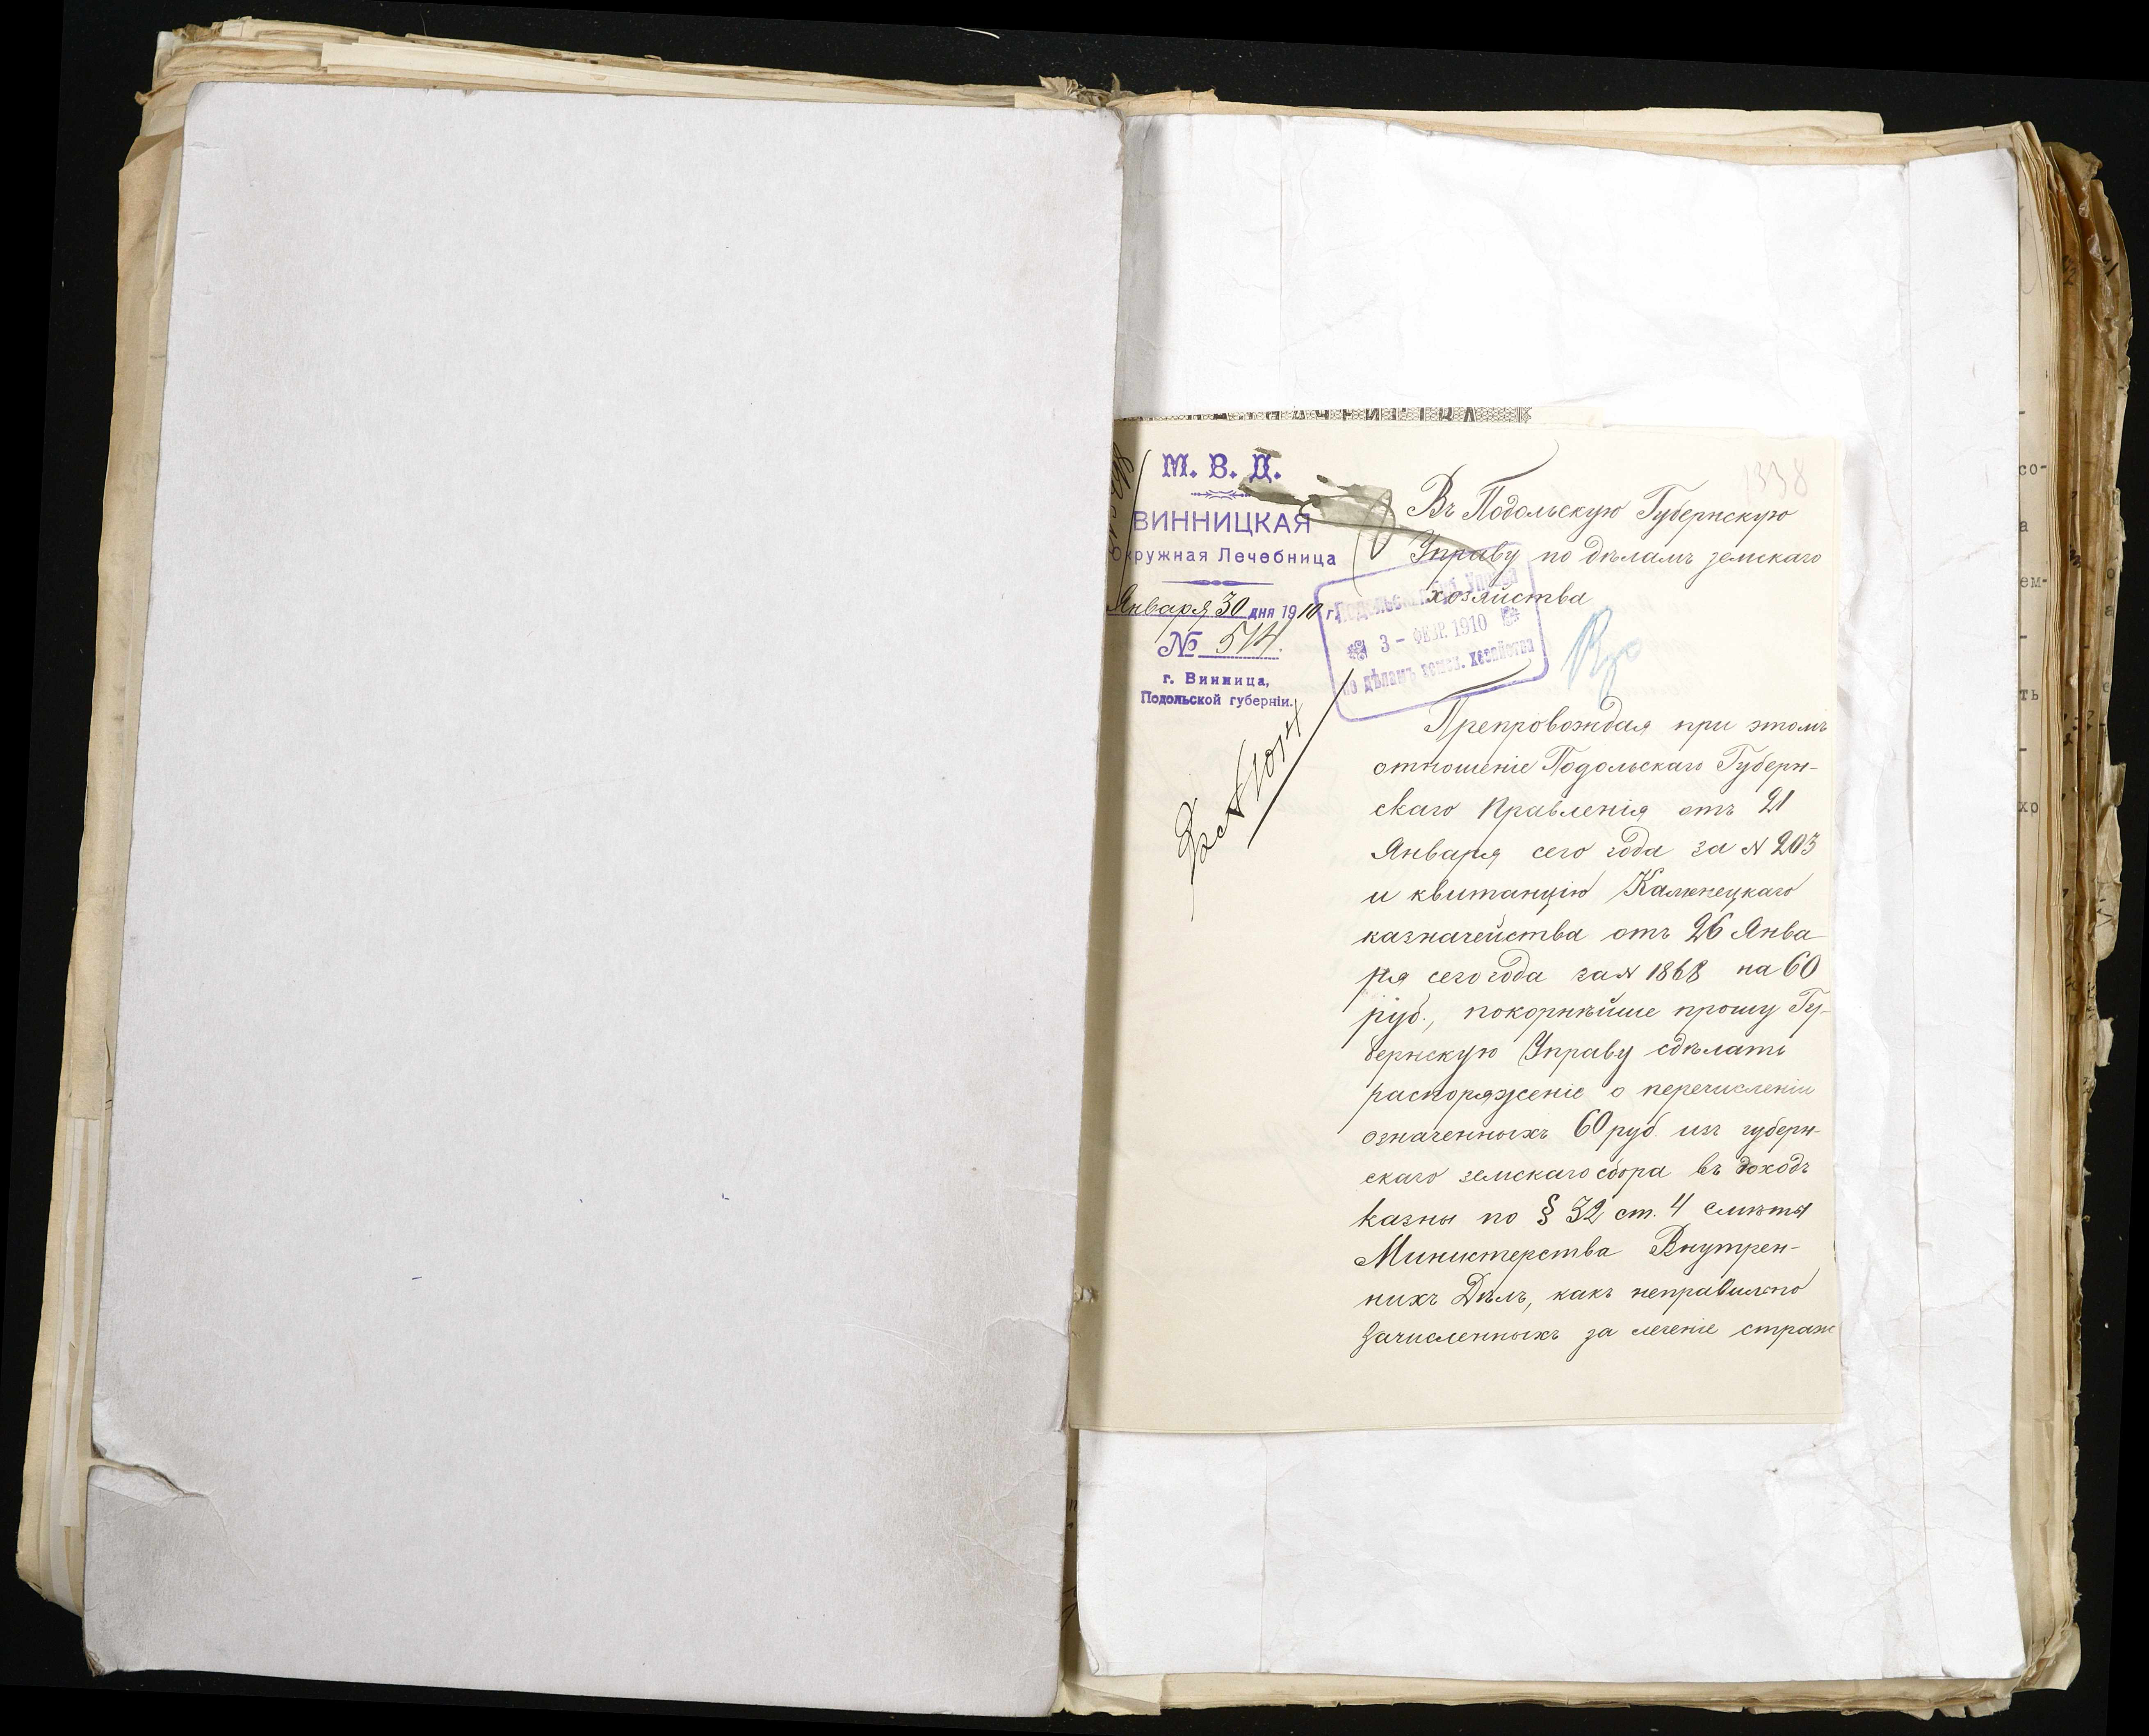 М. В. Д.
ВИННИЦКАЯ
Окружная Лечебница
Января 30 дня 1910 г.
№ 514.
г. Винница,
Подольской губерніи.
1338
Въ Подольскую Губернскую
Управу по дѣламъ земскаго
хозяйства
3 - ФЕВР. 1910
по дѣламъ земск. хозяйства
Препровождая при этомъ
отношеніе Подольскаго Губерн-
скаго Правленія отъ 21
Января сего года за N 203
и квитанцію Каменецкаго
казначейства отъ 26 Янва-
ря сего года за N 1868 на 60
руб., покорнѣйше прошу Гу-
бернскую Управу сдѣлать
распоряженіе о перечисленіи
означенныхъ 60 руб. изъ губерн-
скаго земскаго сбора въ доходъ
казны по § 32 ст. 4 смѣты
Министерства Внутрен-
нихъ Дѣлъ, какъ неправильно
зачисленныхъ за леченіе страж